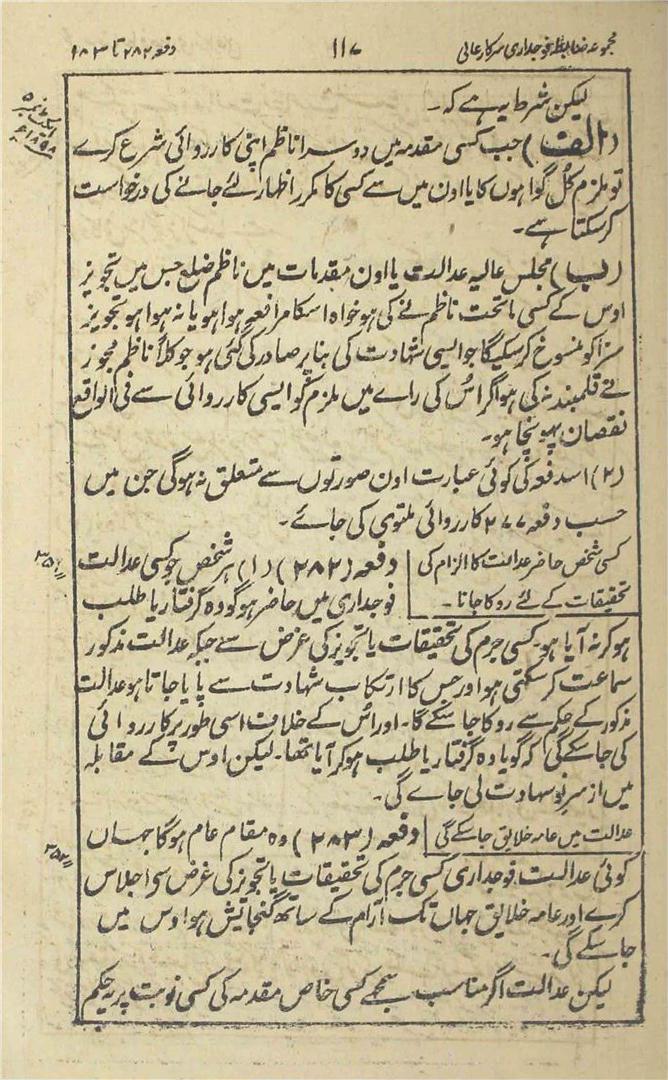 مجموعہ ضابطہ فوجداری سرکار عالی
۱۱۷
دفعہ ۲۸۲ تا ۲۸۳
لیکن شرط یہ ہے کہ۔
(الف) جب کسی مقدمہ میں دوسرا ناظم اپنی کارروائی شرع کرے
تو ملزم کُل گواہوں کا یا اون میں سے کسی کا مکرر اظہار لئے جانے کی درخواست
کر سکتا ہے۔
(ب) مجلس عالیہ عدالت یا اون مقدمات میں ناظم ضلع جس میں تجویز
اوس کے کسی ماتحت ناظم نے کی ہو خواہ اسکا مرافعہ ہوا ہو یا نہ ہوا ہو تجویز
سزا کو منسوخ کر سکیگا جو ایسی شہادت کی بنا پر صادر کی گئی ہو جو کلاً ناظم مجوز
نے قلمبند نہ کی ہو اگر اُس کی راے میں ملزم کو ایسی کارروائی سے فی الواقع
نقصان پہونچا ہو۔
(۲) اسدفعہ کی کوئی عبارت اون صورتوں سے متعلق نہ ہوگی جن میں
حسب دفعہ ۲۷۷ کارروائی ملتوی کی جائے۔
کسی شخص حاضر عدالت کا الزام کی
تحقیقات کے لئے روکا جانا۔
دفعہ (۲۸۲) (۱) ہر شخص جو کسی عدالت
فوجداری میں حاضر ہو گو وہ گرفتار یا طلب
ہو کر نہ آیا ہو۔ کسی جرم کی تحقیقات یا تجویز کی غرض سے جبکہ عدالت مذکور
سماعت کر سکتی ہو اور جس کا ارتکاب شہادت سے پایا جاتا ہو عدالت
مذکور کے حکم سے روکا جا سکے گا۔ اور اُس کے خلاف اسی طور پر کارروائی
کی جا سکے گی کہ گویا وہ گرفتار یا طلب ہو کر آیا تھا۔ لیکن اوس کے مقابلہ
میں از سر نو شہادت لی جاے گی۔
عدالت میں عامہ خلایق جا سکے گی
دفعہ (۲۸۳) وہ مقام عام ہوگا جہاں
کوئی عدالت فوجداری کسی جرم کی تحقیقات یا تجویز کی غرض سے اجلاس
کرے اور عامہ خلایق جہاں تک آرام کے ساتھ گنجایش ہو اوس میں
جا سکے گی۔
لیکن عدالت اگر مناسب سمجھے کسی خاص مقدمہ کی کسی نوبت پر یہ حکم